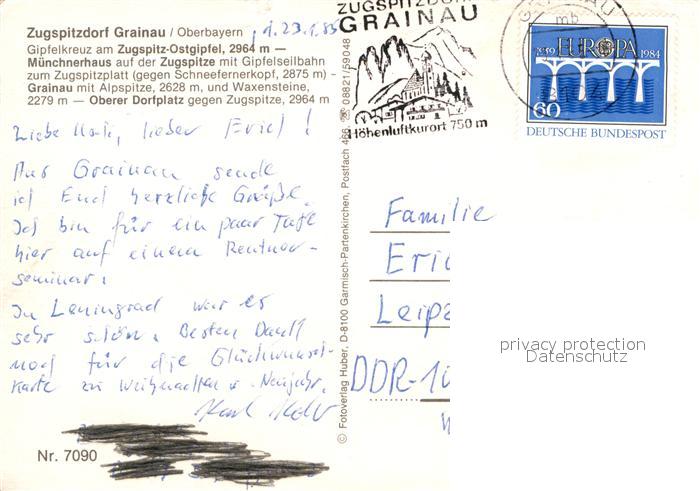 Zugspitzdorf Grainau / Oberbayern
Gipfelkreuz am Zugspitz-Ostgipfel, 2964 m —
Münchnerhaus auf der Zugspitze mit Gipfelseilbahn
zum Zugspitzplatt (gegen Schneefernerkopf, 2875 m) -
Grainau mit Alpspitze, 2628 m, und Waxensteine,
2279 m — Oberer Dorfplatz gegen Zugspitze, 2964 m
d. 23.1.85
Liebe lieber Erich!
Aus Grainau sende
ich Euch herzliche Grüße.
Ich bin für ein paar Tage
hier auf einem Rentner-
seminar.
In Leningrad war es
sehr schön. Besten Dank
noch für die Glückwunsch-
karte zu Weihnachten u. Neujahr.
Karl
Nr. 7090
© Fotoverlag Huber, D-8100 Garmisch-Partenkirchen, Postfach 466, ☎ 08821/59048
ZUGSPITZDORF
GRAINAU
Höhenluftkurort 750 m
GRAINAU
mb
EUROPA
1959
1984
60
DEUTSCHE BUNDESPOST
Familie
Eric
Leipz
DDR-10
privacy protection
Datenschutz